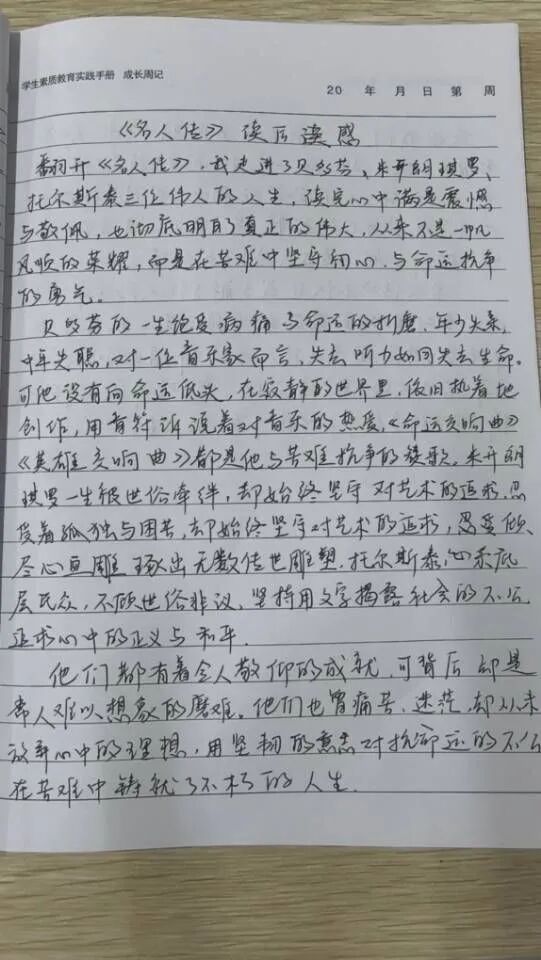 学生素质教育实践手册 成长周记
20 年 月 日 第 周
《名人传》读后读感
翻开《名人传》,我走进了贝多芬、米开朗琪罗、
托尔斯泰三位伟人的人生,读完心中满是震憾
与敬佩,也彻底明白了真正的伟大,从来不是一帆
风顺的荣耀,而是在苦难中坚守初心,与命运抗争
的勇气。
贝多芬的一生饱受病痛与命运的折磨,年少失亲,
中年失聪,对一位音乐家而言,失去听力如同失去生命。
可他没有向命运低头,在寂静的世界里,依旧执着地
创作,用音符诉说着对音乐的热爱,《命运交响曲》
《英雄交响曲》都是他与苦难抗争的赞歌。米开朗
琪罗一生被世俗牵绊,却始终坚守对艺术的追求,忍
受着孤独与困苦,却始终坚守对艺术的追求,忍受倾
尽心血雕琢出无数传世雕塑。托尔斯泰,心系底
层民众,不顾世俗非议,坚持用文字揭露社会的不公
追求心中的正义与和平.
他们都有着令人敬仰的成就,可背后却是
常人难以想象的磨难。他们也曾痛苦、迷茫,却从未
放弃心中的理想,用坚韧的意志对抗命运的不公
在苦难中铸就了不朽的人生.